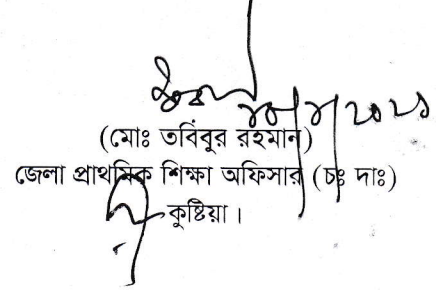 (মোঃ তবিবুর রহমান)
জেলা প্রাথমিক শিক্ষা অফিসার (চঃ দাঃ)
কুষ্টিয়া।